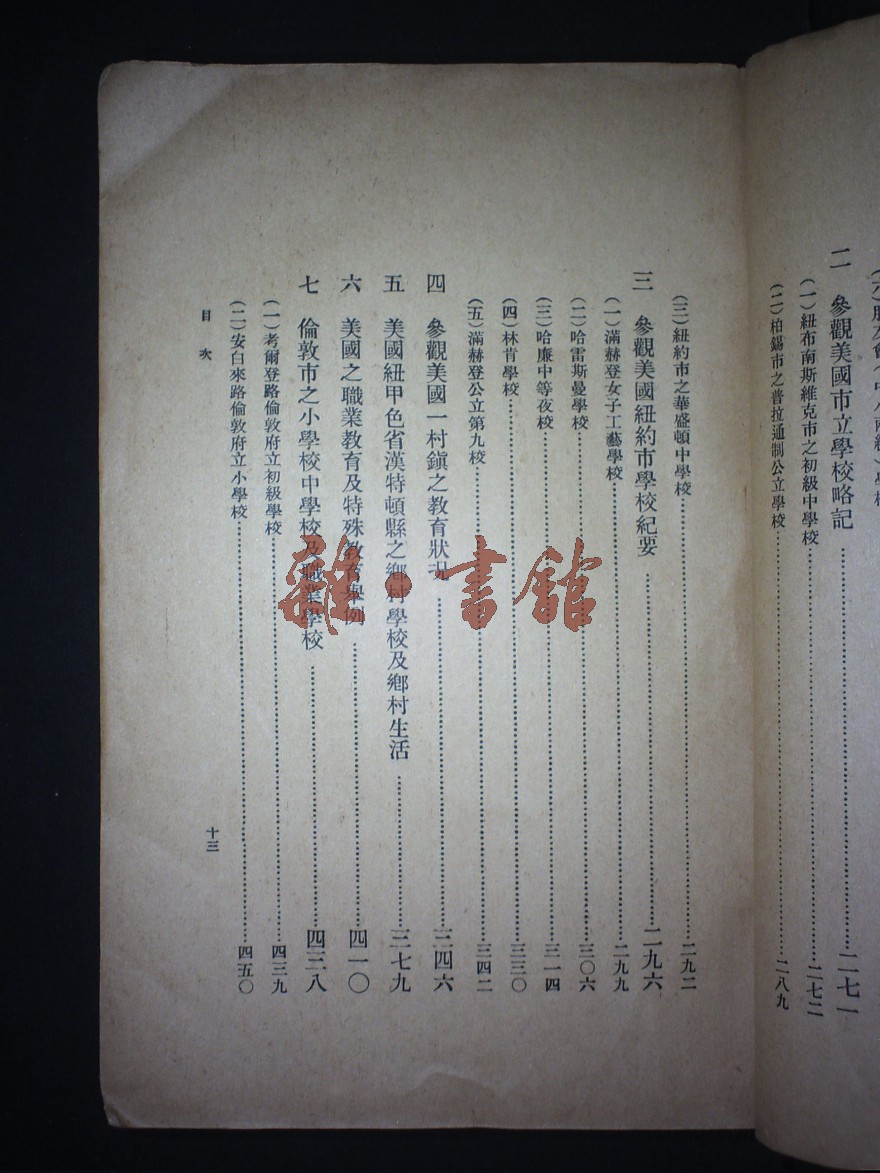 二　參觀美國市立學校略記……二七一
（一）紐布南斯維克市之初級中學校……二七二
（二）柏錫市之普拉通制公立學校……二八九
（三）紐約市之華盛頓中學校……二九二
三　參觀美國紐約市學校紀要……二九六
（一）滿赫登女子工藝學校……二九九
（二）哈雷斯曼學校……三〇六
（三）哈廉中等夜校……三一四
（四）林肯學校……三三〇
（五）滿赫登公立第九校……三四二
四　參觀美國一村鎮之教育狀況……三四六
五　美國紐甲色省漢特頓縣之鄉村學校及鄉村生活……三七九
六　美國之職業教育及特殊教育舉例……四一〇
七　倫敦市之小學校中學校及職業學校……四三八
（一）考爾登路倫敦府立初級學校……四三九
（二）安白來路倫敦府立小學校……四五〇
目次　十三
雜·書館